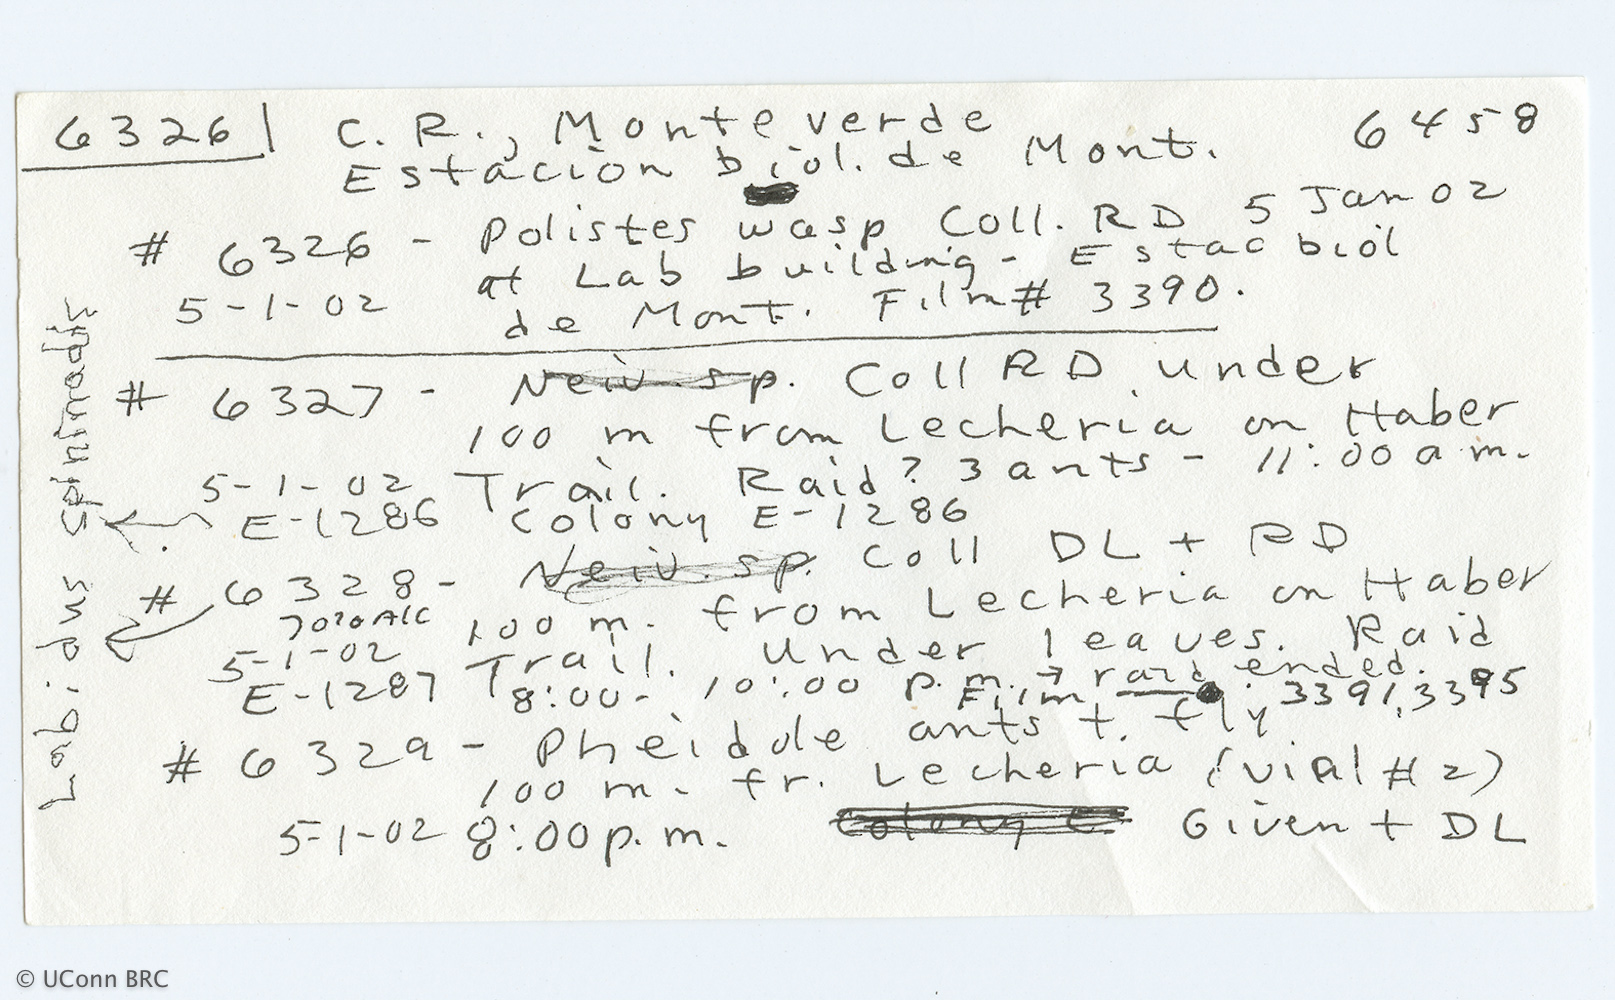 6326 C. R., Monteverde 6458
Estación biol. de Mont.
# 6326 - Polistes wasp Coll. RD 5 Jan 02
5-1-02 at Lab building - Estac biol
de Mont. Film# 3390.
# 6327 - Neiv. sp. Coll RD under
100 m from Lecheria on Haber
5-1-02 Trail. Raid? 3 ants - 11:00 a.m.
E-1286 Colony E-1286
# 6328 - Neiv. sp. Coll DL + RD
70% Alc 100 m. from Lecheria on Haber
5-1-02 Trail. Under leaves. Raid
E-1287 8:00- 10:00 p.m. → raid ended.
Film 3391, 3395
# 6329 - Pheidole ants + fly
100 m. fr. Lecheria (vial # 2)
5-1-02 8:00 p.m. Colony E Given + DL
Labidus spininodis
© UConn BRC